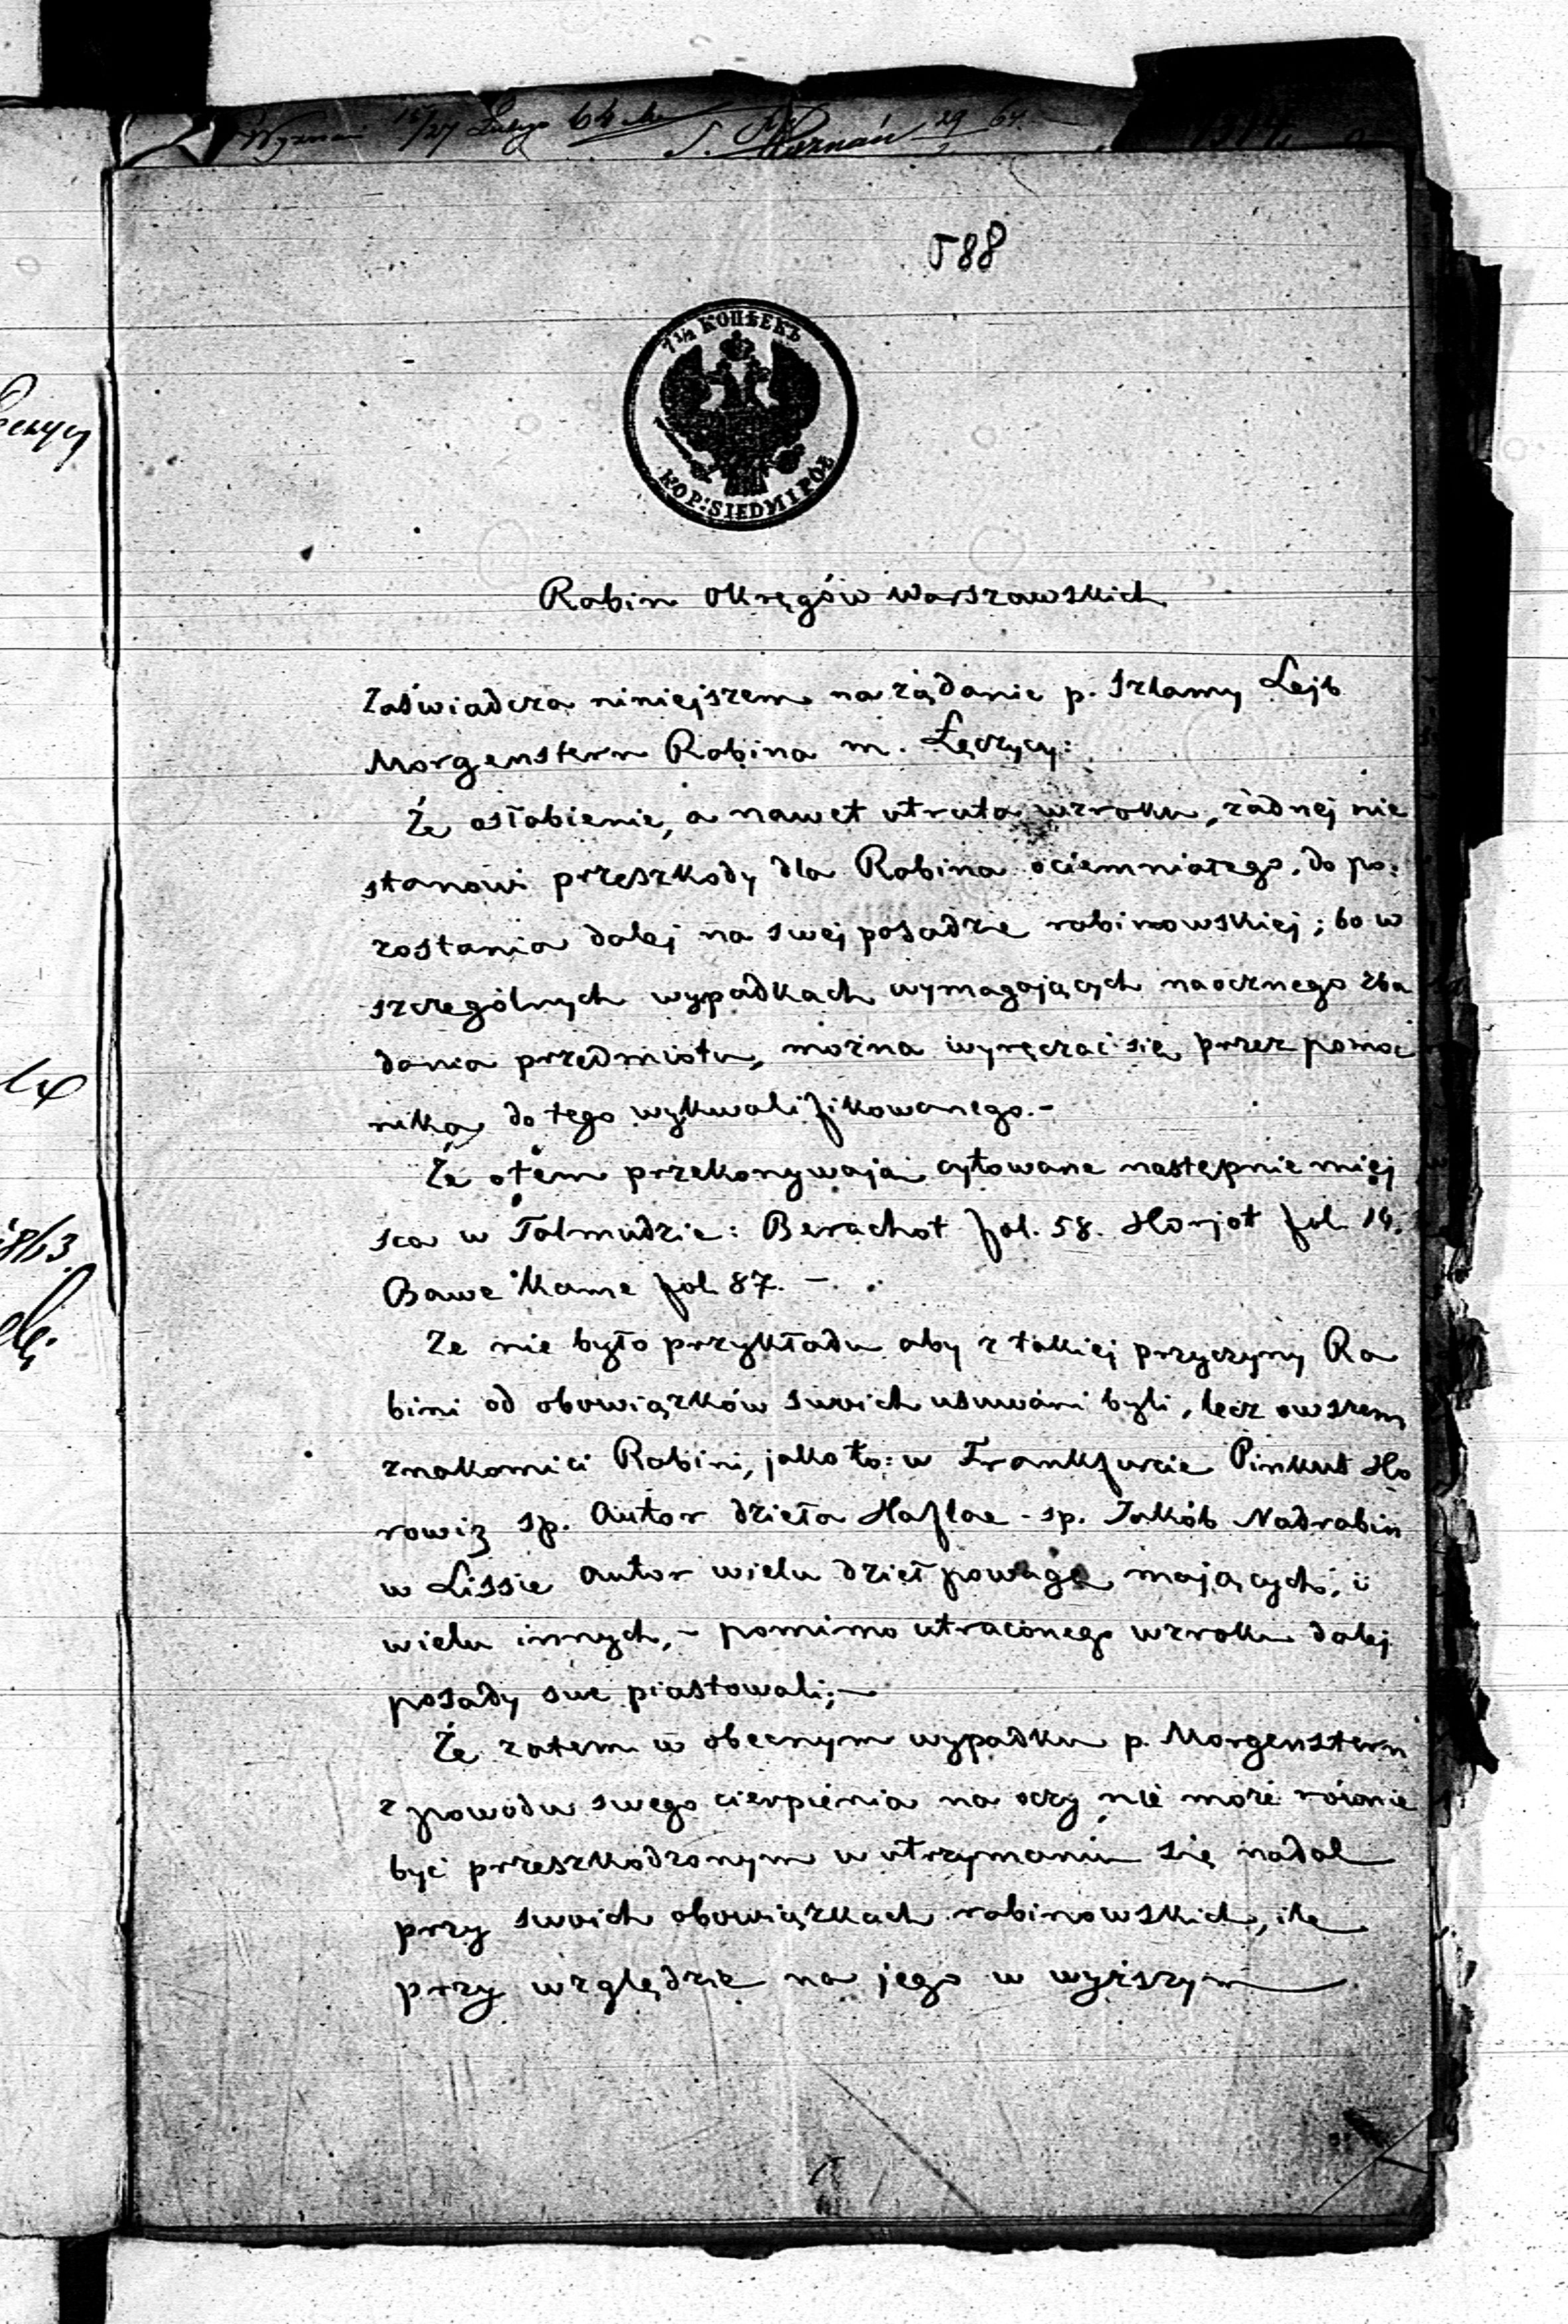 15/27 Lutego 64
29 64.
588
7½ КОПѢЕКЪ
KOP: SIEDM I PÓŁ
Rabin Okręgów Warszawskich
Zaświadcza niniejszem na żądanie p. Szlamy Lejb
Morgenstern Rabina m. Łęczycy:
Że osłabienie, a nawet utrata wzroku, żadnej nie
stanowi przeszkody dla Rabina ociemniałego, do po:
zostania dalej na swej posadzie rabinowskiej; bo w
szczególnych wypadkach wymagających naocznego zba
dania przedmiotu, można wyręczać się przez pomoc
nika do tego wykwalifikowanego.-
Że o tem przekonywają cytowane następnie miej
sca w Talmudzie: Berachot fol. 58. Horjot fol. 14.
Bawe Kame fol 87. -
Że nie było przykładu aby z takiej przyczyny Ra
bini od obowiązków swoich usuwani byli, lecz owszem
znakomici Rabini, jako to: w Frankfurcie Pinkus Ho
rowiz sp. Autor dzieła Haflae - sp. Jakób Nadrabin
w Lissie Autor wielu dzieł powagę mających, i
wielu innych, - pomimo utraconego wzroku dalej
posady swe piastowali; -
Że zatem w obecnym wypadku p. Morgenstern
z powodu swego cierpienia na oczy nie może równie
być przeszkodzonym w utrzymaniu się nadal
przy swoich obowiązkach rabinowskich, ile
przy względzie na jego w wyższym